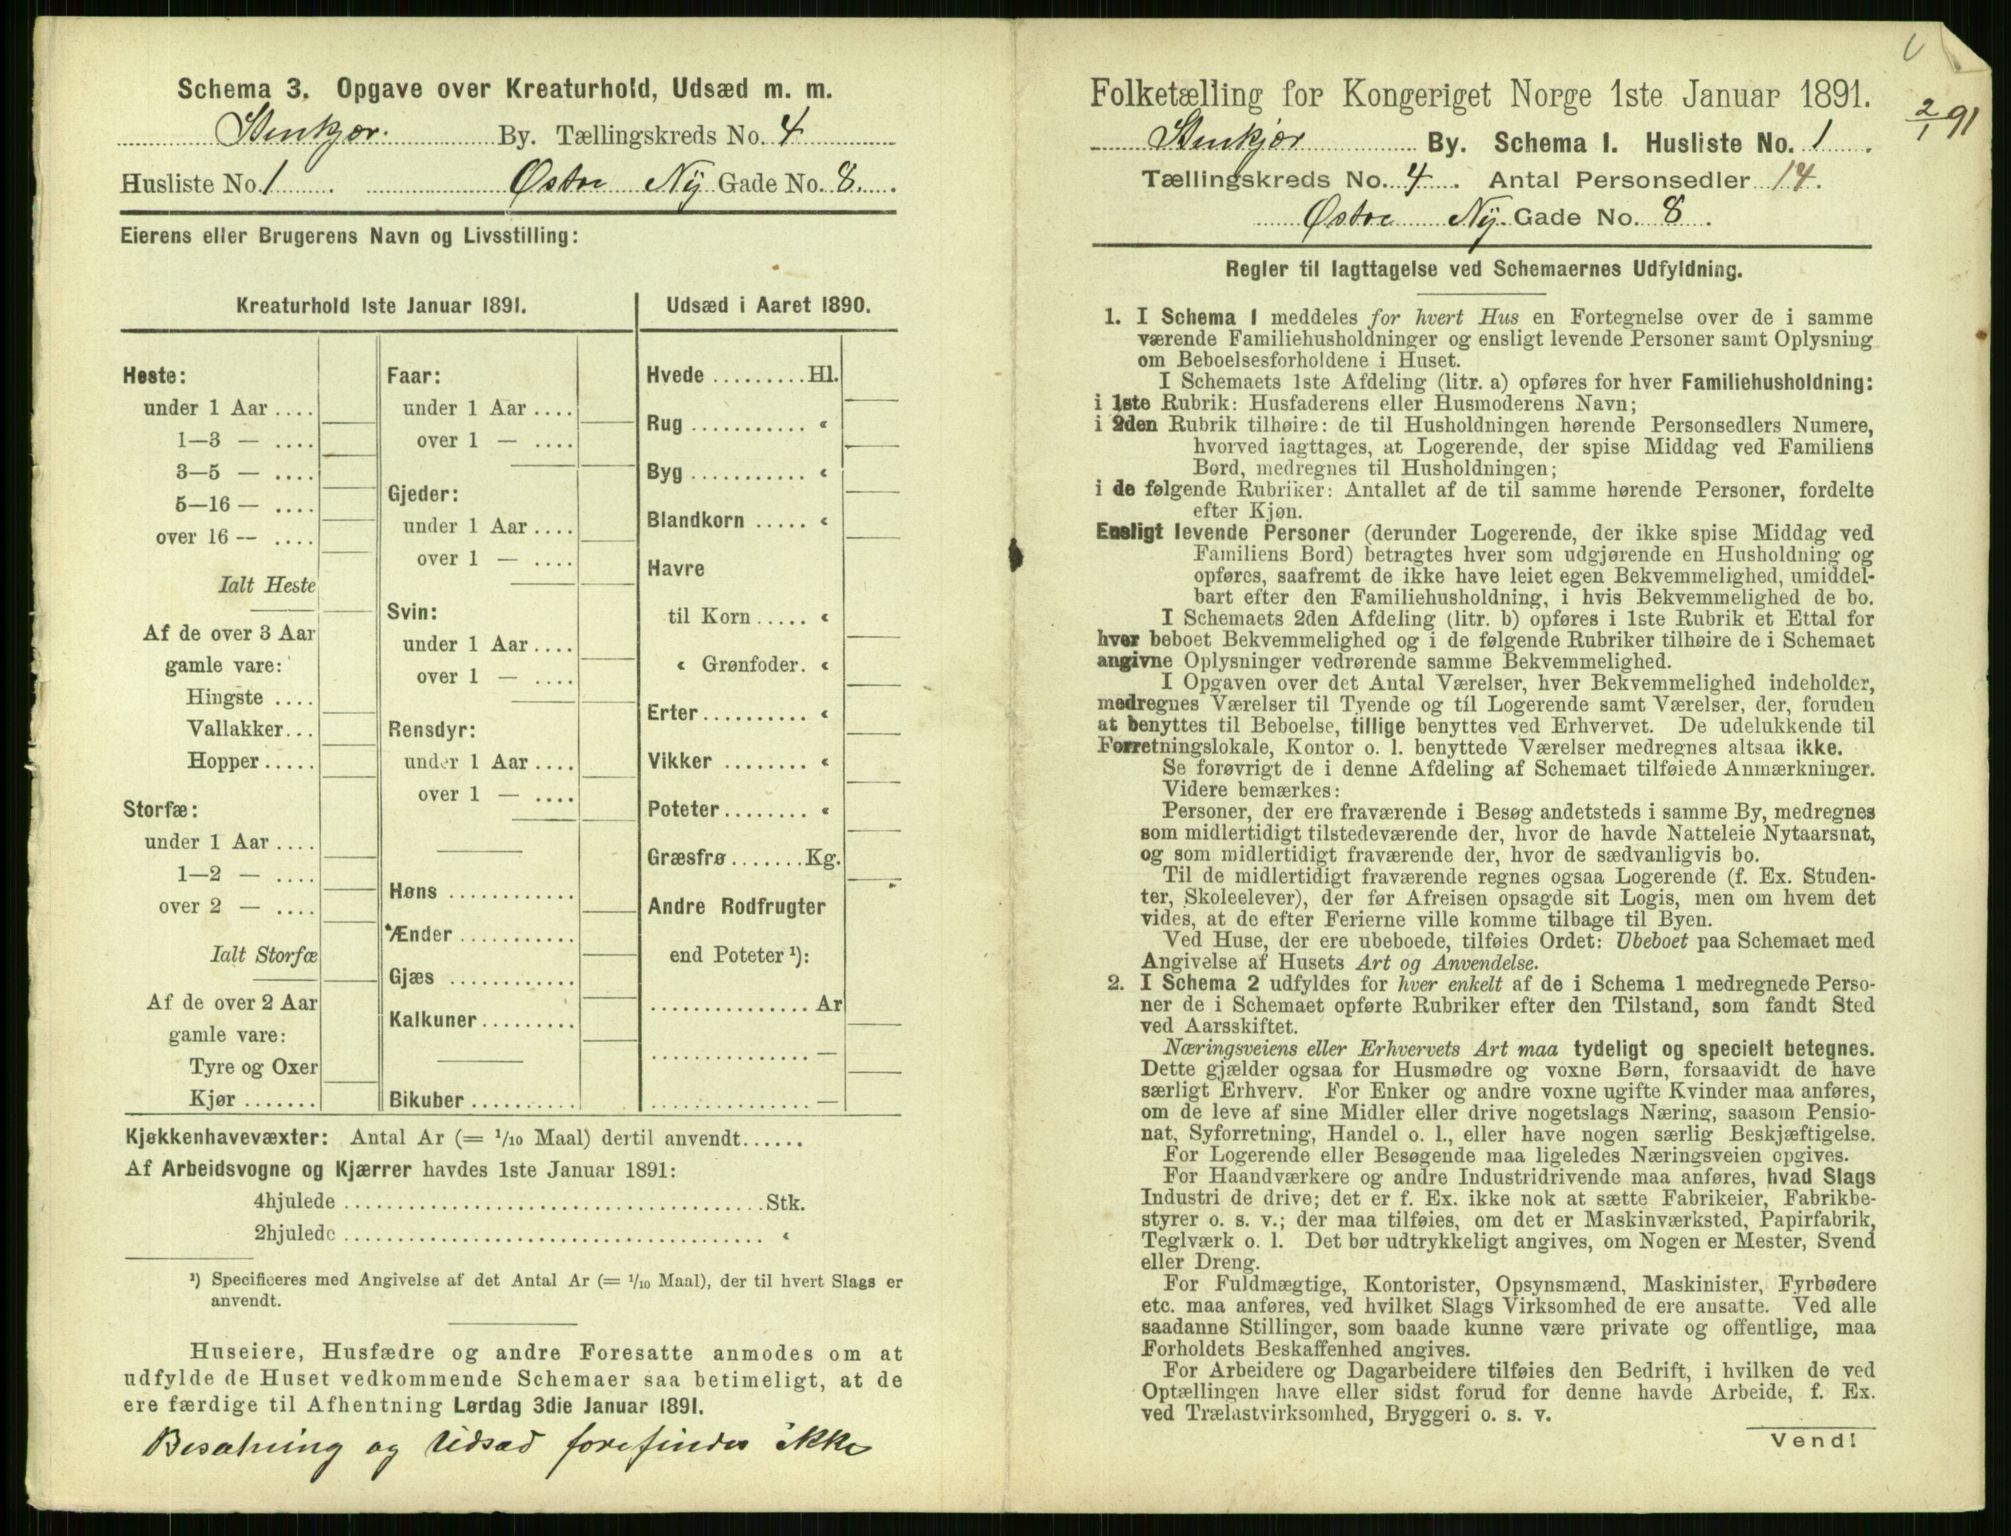 Schema 3. Opgave over Kreaturhold, Udsæd m. m.
Stenkjær. By. Tællingskreds No. 4
Husliste No. 1 Østre Ny Gade No. 8.
Eierens eller Brugerens Navn og Livsstilling:
Kreaturhold 1ste Januar 1891.
Heste:
under 1 Aar ....
1—3 — ....
3—5 — ....
5—16 — ....
over 16 — ....
Ialt Heste
Af de over 3 Aar
gamle vare:
Hingste ....
Vallakker...
Hopper.....
Storfæ:
under 1 Aar ....
1—2 — ....
over 2 — ....
Ialt Storfæ
Af de over 2 Aar
gamle vare:
Tyre og Oxer
Kjør .......
Faar:
under 1 Aar ....
over 1 — ....
Gjeder:
under 1 Aar ....
over 1 — ....
Svin:
under 1 Aar ....
over 1 — ....
Rensdyr:
under 1 Aar ....
over 1 — ....
Høns ............
Ænder ...........
Gjæs ............
Kalkuner.........
Bikuber ..........
Udsæd i Aaret 1890.
Hvede .........Hl.
Rug ........... «
Byg ........... «
Blandkorn ..... «
Havre
til Korn ..... «
« Grønfoder. «
Erter.......... «
Vikker ........ «
Poteter........ «
Græsfrø.......Kg.
Andre Rodfrugter
end Poteter ¹):
............... Ar
............... —
............... —
Kjøkkenhavevæxter: Antal Ar (= 1/10 Maal) dertil anvendt......
Af Arbeidsvogne og Kjærrer havdes 1ste Januar 1891:
4hjulede ....................................... Stk.
2hjulede ....................................... «
¹) Specificeres med Angivelse af det Antal Ar (= 1/10 Maal), der til hvert Slags er
anvendt.
Huseiere, Husfædre og andre Foresatte anmodes om at
udfylde de Huset vedkommende Schemaer saa betimeligt, at de
ere færdige til Afhentning Lørdag 3die Januar 1891.
Besætning og Udsæd forefindes ikke
2/1 91
Folketælling for Kongeriget Norge 1ste Januar 1891.
Stenkjær By. Schema I. Husliste No. 1.
Tællingskreds No. 4. Antal Personsedler 14.
Østre Ny. Gade No. 8.
Regler til Iagttagelse ved Schemaernes Udfyldning.
1. I Schema 1 meddeles for hvert Hus en Fortegnelse over de i samme
værende Familiehusholdninger og ensligt levende Personer samt Oplysning
om Beboelsesforholdene i Huset.
I Schemaets 1ste Afdeling (litr. a) opføres for hver Familiehusholdning:
i 1ste Rubrik: Husfaderens eller Husmoderens Navn;
i 2den Rubrik tilhøire: de til Husholdningen hørende Personsedlers Numere,
hvorved iagttages, at Logerende, der spise Middag ved Familiens
Bord, medregnes til Husholdningen;
i de følgende Rubriker: Antallet af de til samme hørende Personer, fordelte
efter Kjøn.
Ensligt levende Personer (derunder Logerende, der ikke spise Middag ved
Familiens Bord) betragtes hver som udgjørende en Husholdning og
opføres, saafremt de ikke have leiet egen Bekvemmelighed, umiddel-
bart efter den Familiehusholdning, i hvis Bekvemmelighed de bo.
I Schemaets 2den Afdeling (litr. b) opføres i 1ste Rubrik et Ettal for
hver beboet Bekvemmelighed og i de følgende Rubriker tilhøire de i Schemaet
angivne Oplysninger vedrørende samme Bekvemmelighed.
I Opgaven over det Antal Værelser, hver Bekvemmelighed indeholder,
medregnes Værelser til Tyende og til Logerende samt Værelser, der, foruden
at benyttes til Beboelse, tillige benyttes ved Erhvervet. De udelukkende til
Forretningslokale, Kontor o. l. benyttede Værelser medregnes altsaa ikke.
Se forøvrigt de i denne Afdeling af Schemaet tilføiede Anmærkninger.
Videre bemærkes:
Personer, der ere fraværende i Besøg andetsteds i samme By, medregnes
som midlertidigt tilstedeværende der, hvor de havde Natteleie Nytaarsnat,
og som midlertidigt fraværende der, hvor de sædvanligvis bo.
Til de midlertidigt fraværende regnes ogsaa Logerende (f. Ex. Studen-
ter, Skoleelever), der før Afreisen opsagde sit Logis, men om hvem det
vides, at de efter Ferierne ville komme tilbage til Byen.
Ved Huse, der ere ubeboede, tilføies Ordet: Ubeboet paa Schemaet med
Angivelse af Husets Art og Anvendelse.
2. I Schema 2 udfyldes for hver enkelt af de i Schema 1 medregnede Perso-
ner de i Schemaet opførte Rubriker efter den Tilstand, som fandt Sted
ved Aarsskiftet.
Næringsveiens eller Erhvervets Art maa tydeligt og specielt betegnes.
Dette gjælder ogsaa for Husmødre og voxne Børn, forsaavidt de have
særligt Erhverv. For Enker og andre voxne ugifte Kvinder maa anføres,
om de leve af sine Midler eller drive nogetslags Næring, saasom Pensio-
nat, Syforretning, Handel o. l., eller have nogen særlig Beskjæftigelse.
For Logerende eller Besøgende maa ligeledes Næringsveien opgives.
For Haandværkere og andre Industridrivende maa anføres, hvad Slags
Industri de drive; det er f. Ex. ikke nok at sætte Fabrikeier, Fabrikbe-
styrer o. s. v.; der maa tilføies, om det er Maskinværksted, Papirfabrik,
Teglværk o. l. Det bør udtrykkeligt angives, om Nogen er Mester, Svend
eller Dreng.
For Fuldmægtige, Kontorister, Opsynsmænd, Maskinister, Fyrbødere
etc. maa anføres, ved hvilket Slags Virksomhed de ere ansatte. Ved alle
saadanne Stillinger, som baade kunne være private og offentlige, maa
Forholdets Beskaffenhed angives.
For Arbeidere og Dagarbeidere tilføies den Bedrift, i hvilken de ved
Optællingen have eller sidst forud for denne havde Arbeide, f. Ex.
ved Trælastvirksomhed, Bryggeri o. s. v.
Vend!